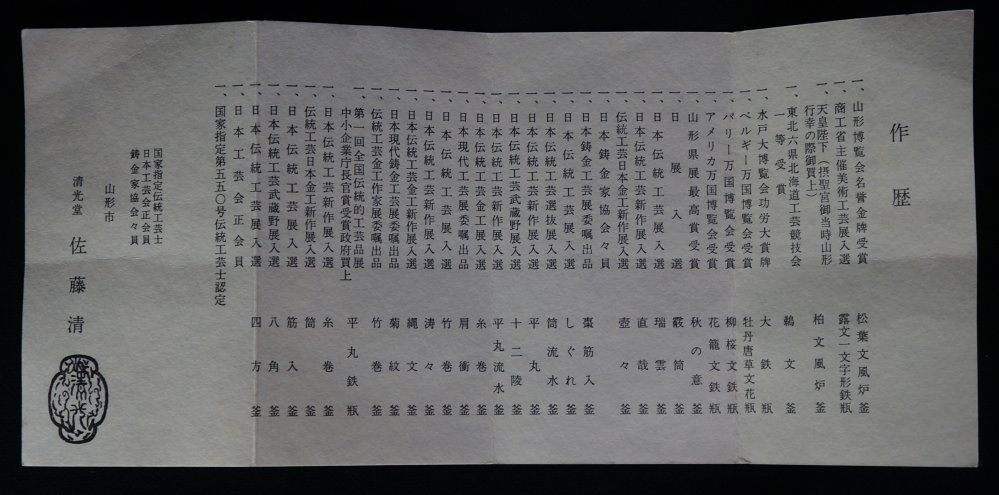 作歴
一、山形博覧会名誉金牌受賞　松葉文風炉釜
一、商工省主催美術工芸展入選　露文一文字形鉄瓶
一、天皇陛下（摂聖宮御当時山形
行幸の際御買上）　柏文風炉釜
一、東北六県北海道工芸競技会
一等受賞　鶴文釜
一、水戸大博覧会功労大賞牌　大鉄瓶
一、ベルギー万国博覧会受賞　牡丹唐草文花瓶
一、パリー万国博覧会受賞　柳桜文鉄瓶
一、アメリカ万国博覧会受賞　花籠文鉄瓶
一、山形県展最高賞受賞　秋の意釜
一、日展入選　霰筒釜
一、日本伝統工芸展入選　瑞雲釜
一、日本伝統工芸新作展入選　直哉釜
一、伝統工芸日本金工新作展入選　壺々釜
一、日本鋳金家協会々員
一、日本鋳金工芸展委嘱出品　棗筋入釜
一、日本伝統工芸展入選　しぐれ釜
一、日本伝統工芸新作選抜展入選　筒流水釜
一、日本伝統工芸新作展入選　平丸釜
一、日本伝統工芸武蔵野展入選　十二陵釜
一、日本伝統工芸新作展入選　平丸流水釜
一、日本伝統工芸金工展入選　糸巻釜
一、日本現代工芸展委嘱出品　肩衝釜
一、日本伝統工芸展入選　竹巻釜
一、日本伝統工芸新作展入選　涛々釜
一、日本伝統工芸金工新作展入選　縄文釜
一、日本現代鋳金工芸展委嘱出品　菊紋釜
一、伝統工芸金工作家展委嘱出品　竹巻釜
一、第一回全国伝統的工芸品展
中小企業庁長官賞受賞政府買上　平丸鉄瓶
一、日本伝統工芸新作展入選　糸巻釜
一、伝統工芸日本金工新作展入選　筒釜
一、日本伝統工芸展入選　筋入釜
一、日本伝統工芸武蔵野展入選　八角釜
一、日本伝統工芸展入選　四方釜
一、日本工芸会正会員
一、国家指定第五五〇号伝統工芸士認定
国家指定伝統工芸士
日本工芸会正会員
鋳金家協会々員
山形市
清光堂　佐藤清